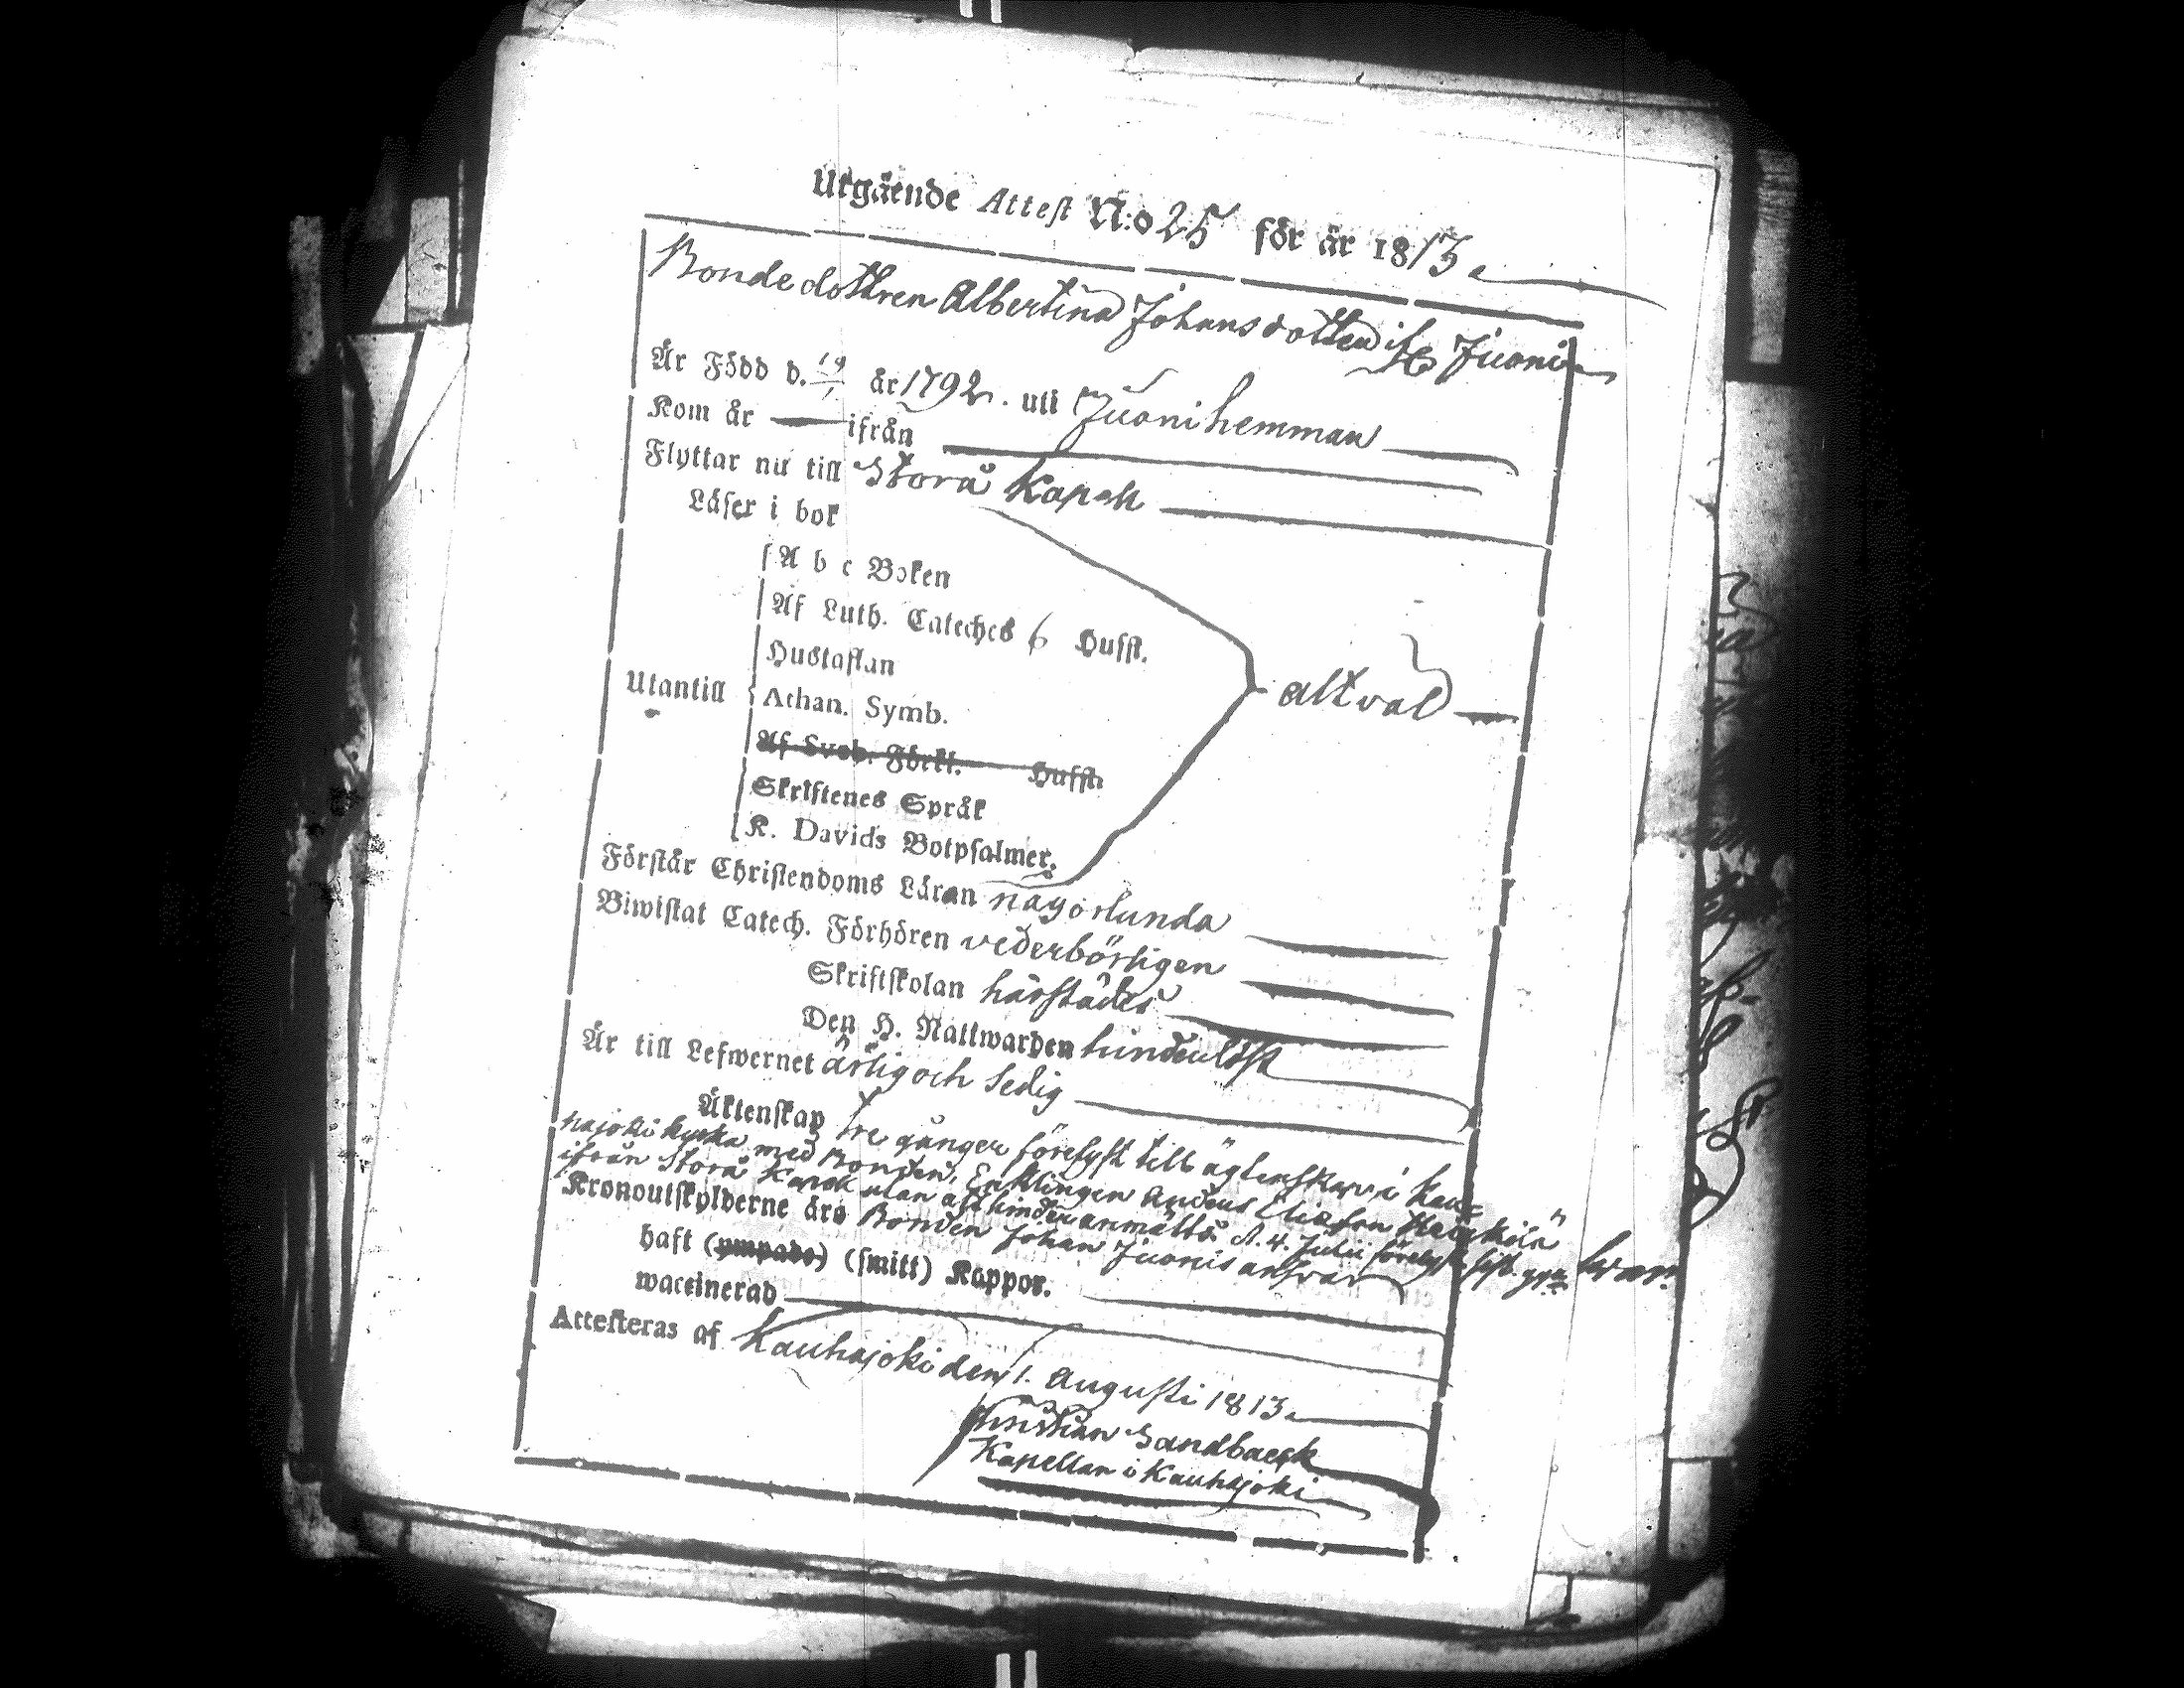 Utgående Attest N:o 25 för år 1813
Bondedottren Albertina Johansdotter if. Juoni
Är Född d. 19/1 år 1792. uti Juoni hemman
Kom år — ifrån —
Flyttar nu till Storå Kapell
Läser i bok
A b c Boken
Af Luth. Cateches 6 Hufst.
Hustaflan
Utantill
Athan. Symb.
altval
Af Sveb. Förkl. Hufst.
Skriftenes Språk
K. Davids Botpsalmer.
Förstår Christendoms Läran någorlunda
Biwistat Catech. Förhören vederbörligen
Skriftskolan härstädes
Den H. Nattwarden hinderlöst
Är till Lefwernet ärlig och sedig
Äktenskap tre gånger förelyst till ägtenskap i Kau=
hajoki kyrka med Bonden, Enklingen Anders Eliasson
ifrån Storå Kapell utan att hinder anmältes. d. 4. Julii förelyst sist
Kronoutskylderne äro Bonden Johan Juonis answar
haft (ympade) (smitt) Kappor.
waccinerad
Attesteras af Kauhajoki den 1. Augusti 1813
Christian Sandbaeck
Kapellan i Kauhajoki